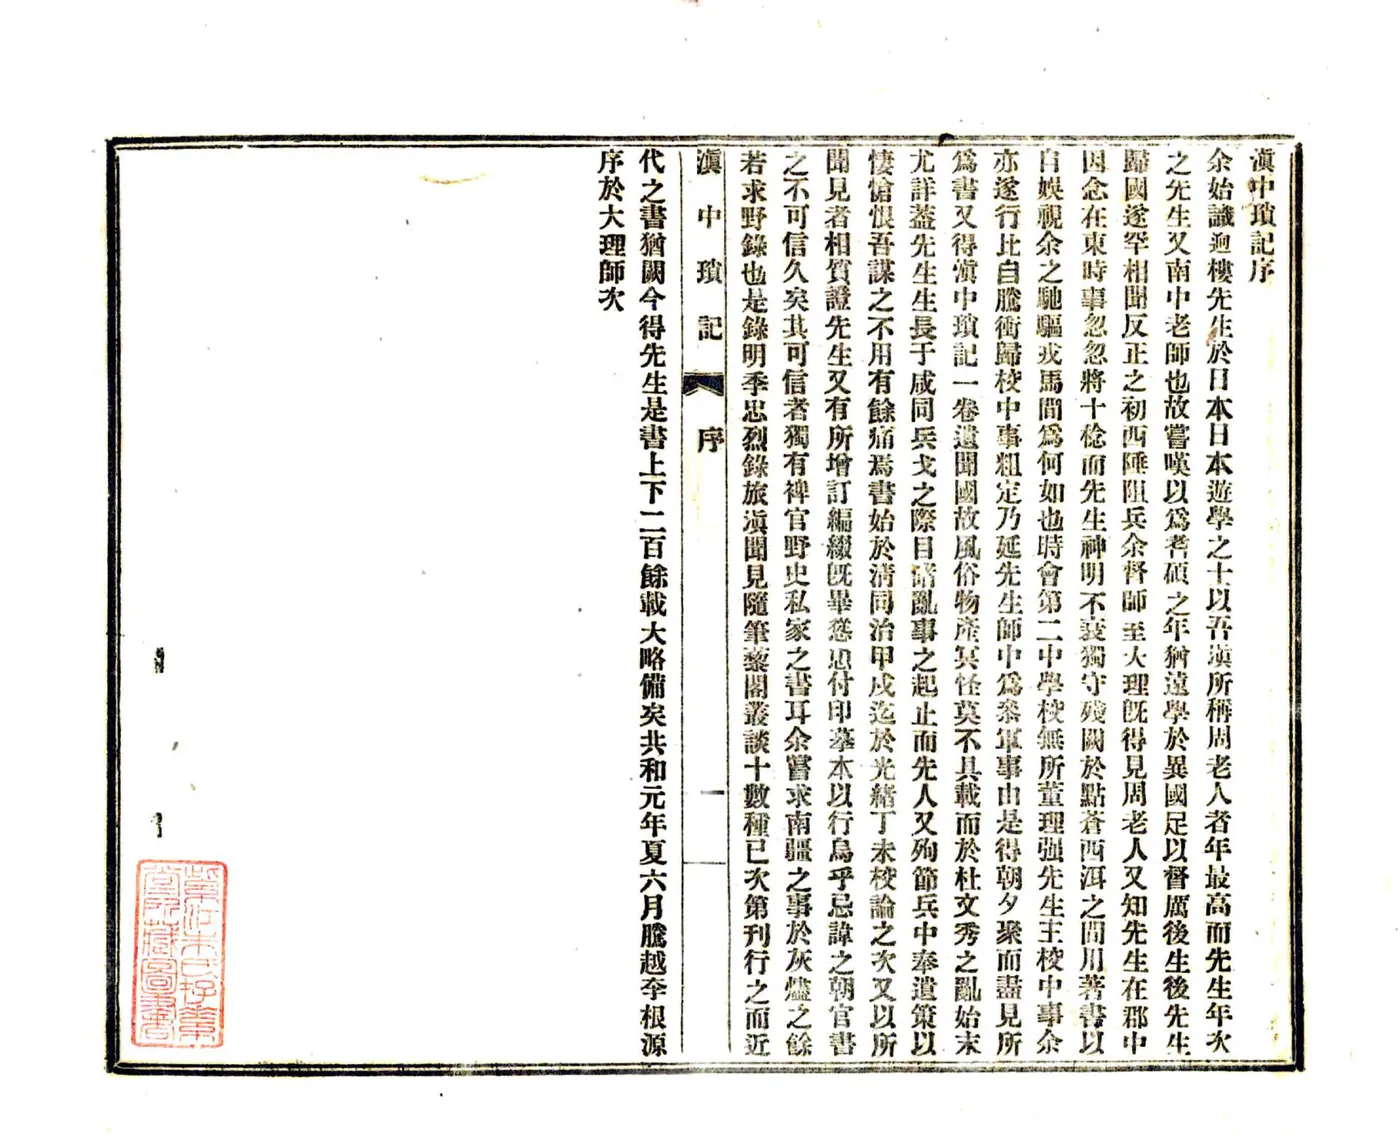 滇中瑣記序
余始識迴樓先生於日本日本遊學之士以吾滇所稱周老人者年最高而先生年次
之先生又南中老師也故嘗嘆以爲耆碩之年猶遠學於異國足以督厲後生後先生
歸國遂罕相聞反正之初西陲阻兵余督師至大理旣得見周老人又知先生在郡中
因念在東時事忽忽將十稔而先生神明不衰獨守殘闕於點蒼西洱之間用著書以
自娛視余之馳驅戎馬間爲何如也時會第二中學校無所董理强先生主校中事余
亦遂行比自騰衝歸校中事粗定乃延先生師中爲叅軍事由是得朝夕聚而盡見所
爲書又得滇中瑣記一卷遺聞國故風俗物產冥怪莫不具載而於杜文秀之亂始末
尤詳葢先生生長于咸同兵戈之際目諸亂事之起止而先人又殉節兵中奉遺策以
悽愴恨吾謀之不用有餘痛焉書始於淸同治甲戌迄於光緖丁未校論之次又以所
聞見者相質證先生又有所增訂編綴旣畢慫恿付印摹本以行烏乎忌諱之朝官書
之不可信久矣其可信者獨有裨官野史私家之書耳余嘗求南疆之事於灰燼之餘
若求野錄也是錄明季忠烈錄旅滇聞見隨筆藜閣叢談十數種已次第刊行之而近
滇中瑣記 序 一
代之書猶闕今得先生是書上下二百餘載大略備矣共和元年夏六月騰越李根源
序於大理師次